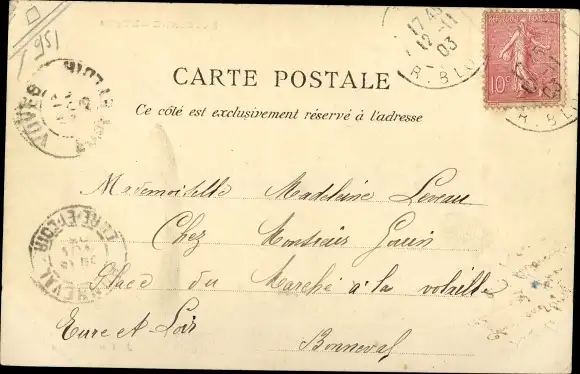 951
17 45
12 -11
03
R. BLEU
10c
CARTE POSTALE
Ce côté est exclusivement réservé à l'adresse
Mademoiselle Madeleine Leveau
Chez Monsieur Gouin
Place du Marché à la volaille
Eure et Loir
Bonneval
VOVES
EURE-ET-LOIR
BONNEVAL
EURE-ET-LOIR